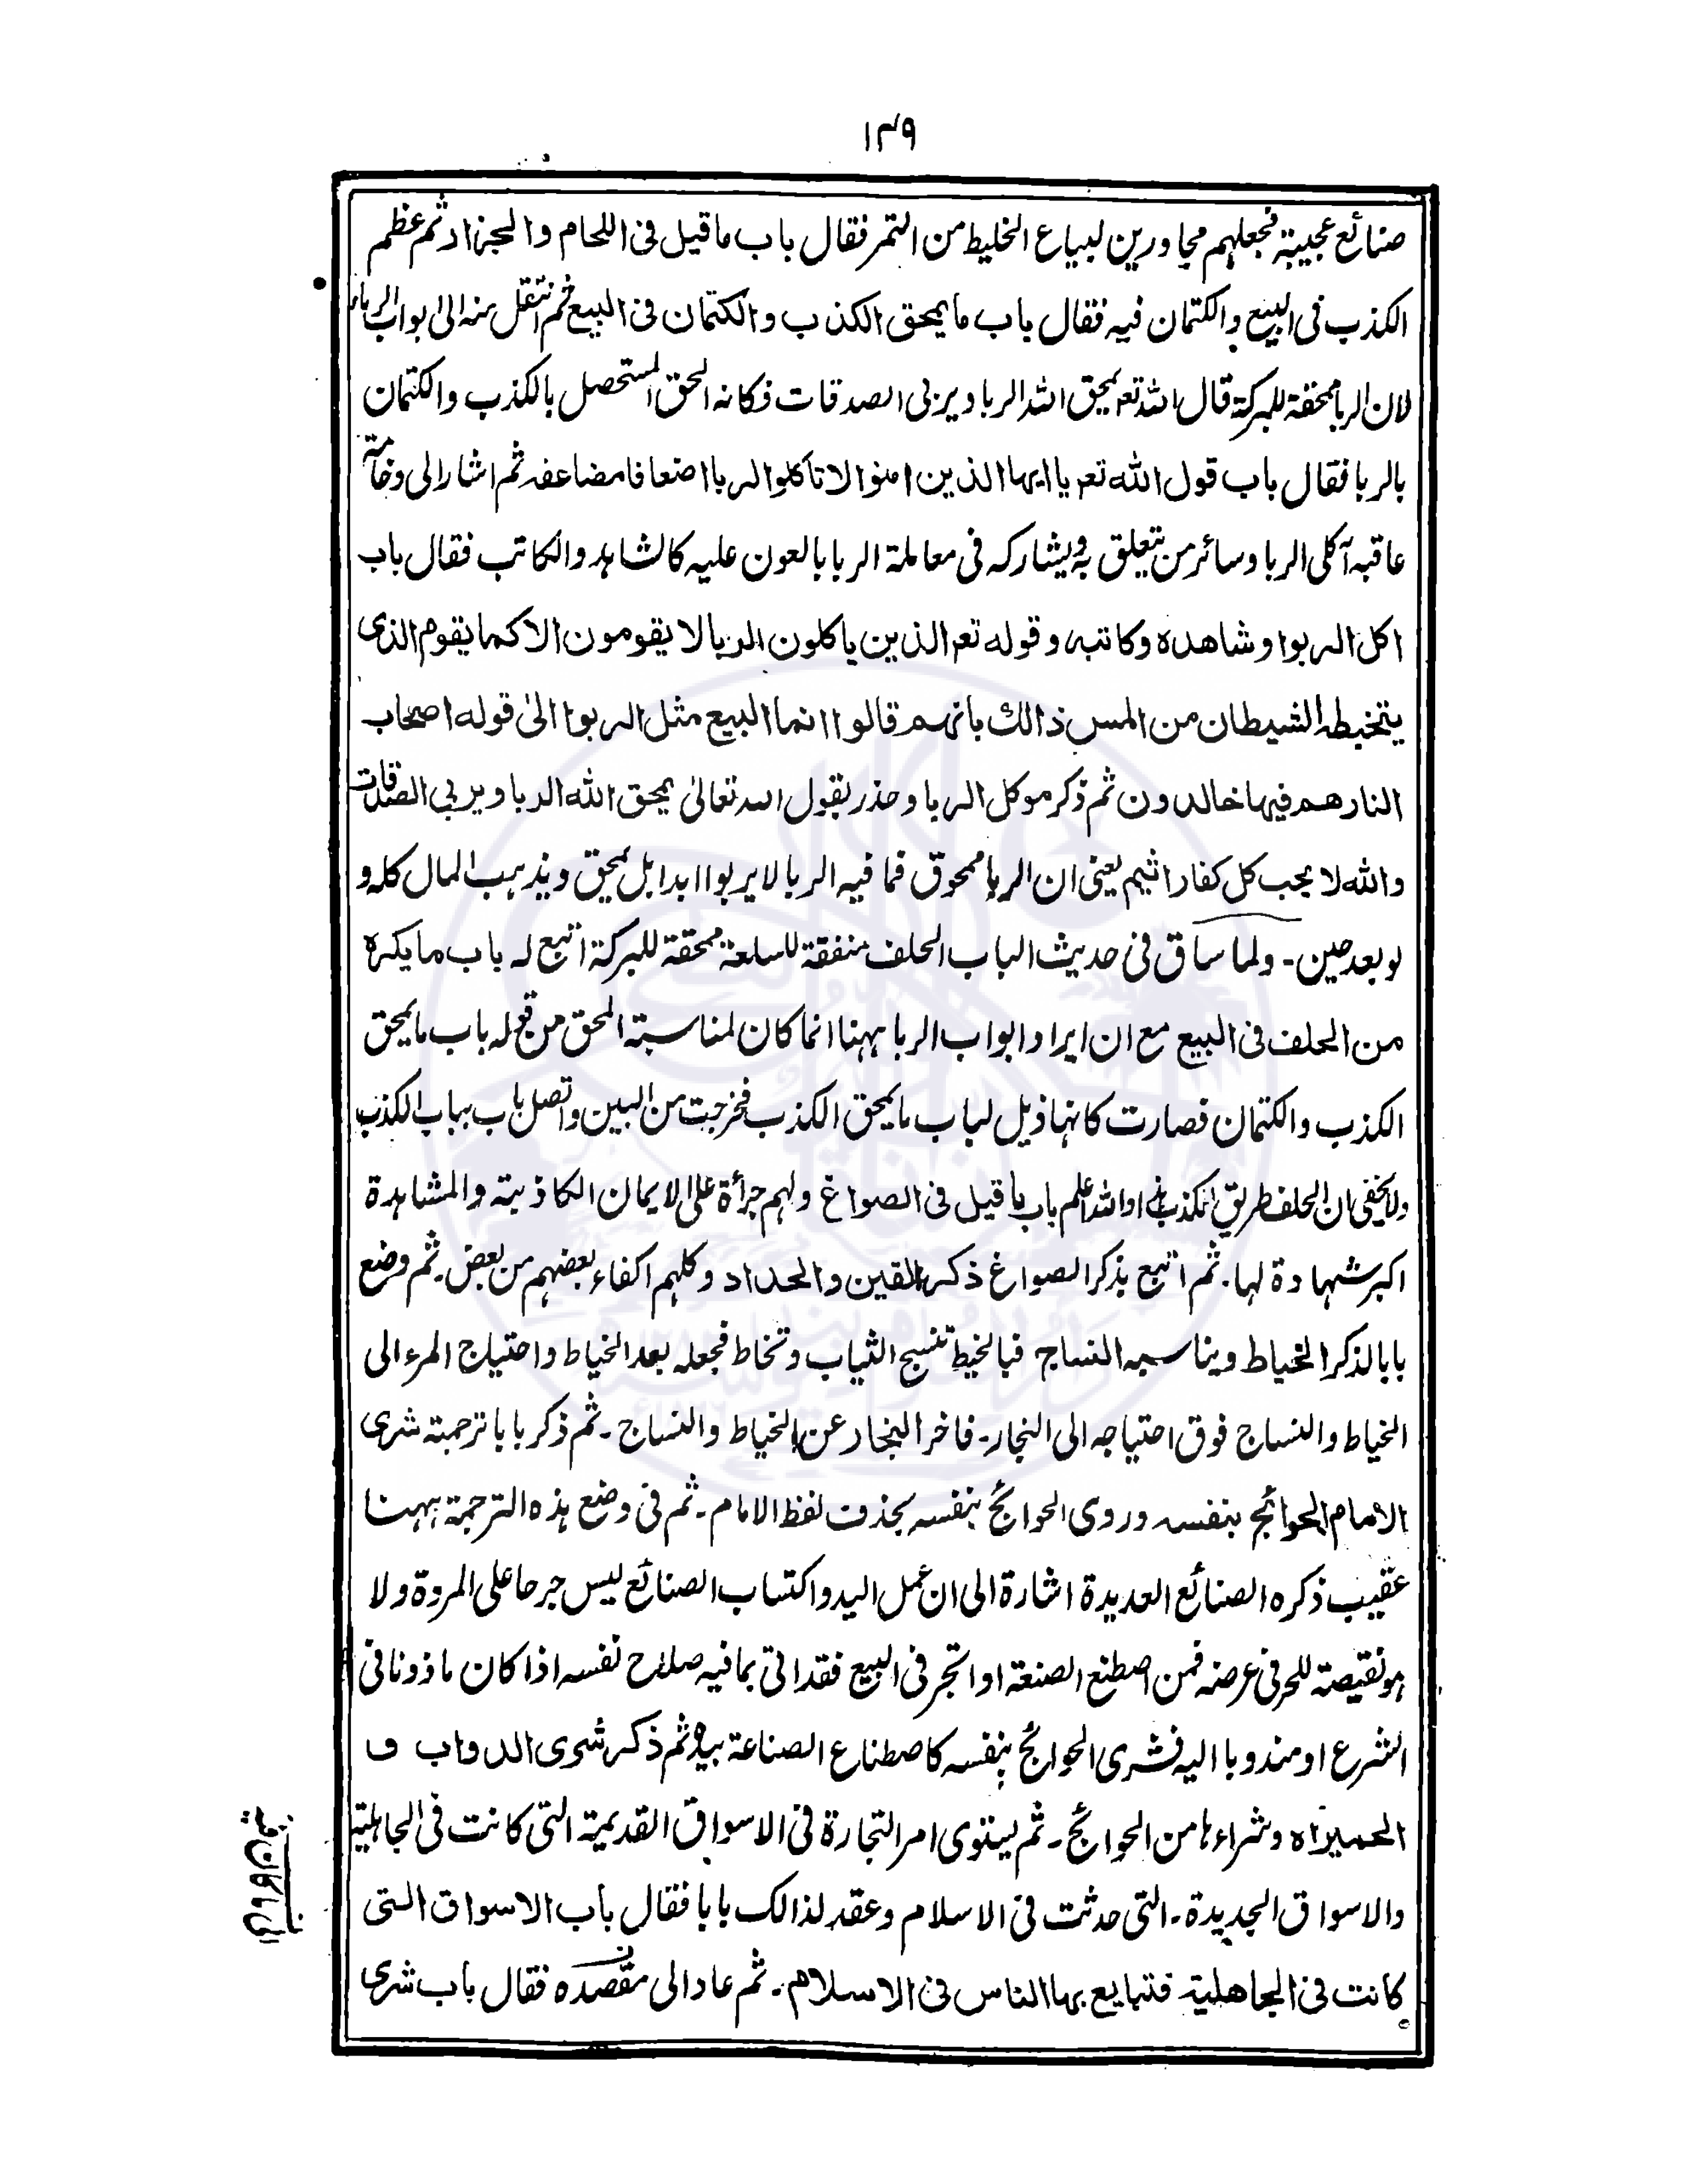 ١٣٩
صنائع عجيبة فجعلهم مجاورين لبياع الخليط من التمر فقال باب ماقيل فى اللحام والجزار ثم عظم
الكذب فى البيع والكتمان فيه فقال باب ما يمحق الكذب والكتمان فى البيع ثم انتقل منه الى ابواب الربا
لان الربا ممحقة للبركة قال الله تعم يمحق الله الربا ويربى الصدقات فكانه الحق المستحصل بالكذب والكتمان
بالربا فقال باب قول الله تعم يا ايها الذين امنوا لا تاكلوا الربا اضعافا مضاعفه ثم اشار الى وخامته
عاقبه آكلى الربا وسائر من تتعلق به ويشاركه فى معاملة الربا بالعون عليه كالشاهد والكاتب فقال باب
اكل الربوا وشاهده وكاتبه وقوله تعم الذين ياكلون الربا لا يقومون الا كما يقوم الذى
يتخبطه الشيطان من المس ذالك بانهم قالوا انما البيع مثل الربوا الىٰ قوله اصحاب
النار هم فيها خالدون ثم ذكر موكل الربا وحذر بقول الله تعالىٰ يمحق الله الربا ويربي الصدقات
والله لا يحب كل كفار اثيم يعنى ان الربا ممحوق فما فيه الربا لا يربوا ابدا بل يمحق ويذهب المال كله و
لو بعد حين - ولما ساق فى حديث الباب الحلف منفقة للسلعة ممحقة للبركة اتبع له باب ما يكره
من الحلف فى البيع مع ان ايراد ابواب الربا ههنا انما كان لمناسبة المحق من قوله باب ما يمحق
الكذب والكتمان فصارت كانها ذيل لباب ما يمحق الكذب فخرجت من البين واتصل باب بباب الكذب
ولا يخفى ان الحلف طريق الكذب والله اعلم باب ما قيل فى الصواغ ولهم جرأة على الايمان الكاذبة والمشاهدة
اكبر شهادة لها. ثم اتبع بذكر الصواغ ذكر القين والحداد وكلهم اكفاء بعضهم من بعض. ثم وضع
بابا لذكر الخياط ويناسبه النساج فبالخيط تنسج الثياب وتخاط فجعله بعد الخياط واحتياج المرء الى
الخياط والنساج فوق احتياجه الى النجار - فاخر النجار عن الخياط والنساج - ثم ذكر بابا ترجمته شرى
الامام الحوائج بنفسه وروى الحوائج بنفسه بحذف لفظ الامام - ثم فى وضع هذه الترجمة ههنا
عقيب ذكره الصنائع العديدة اشارة الى ان عمل اليد واكتساب الصنائع ليس جرحا على المروة ولا
هو نقيصة للحر فى عرضه فمن اصطنع الصنعة او اتجر فى البيع فقد اتى بما فيه صلاح نفسه اذا كان ماذونا فى
الشرع او مندوبا اليه فشرى الحوائج بنفسه كاصطناع الصناعة بيده ثم ذكر شرى الدواب و
الحميراه وشراءها من الحوائج - ثم يستوى امر التجارة فى الاسواق القديمة التى كانت فى الجاهلية
والاسواق الجديدة - التى حدثت فى الاسلام وعقد لذالك بابا فقال باب الاسواق التى
كانت فى الجاهلية فتبايع بها الناس فى الاسلام - ثم عاد الى مقصده فقال باب شرى